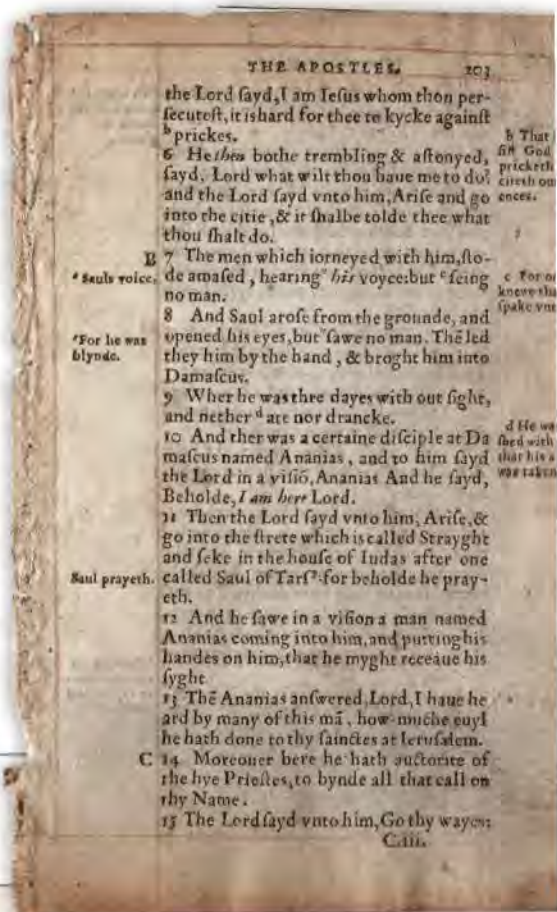 THE APOSTLES. 203
the Lord ſayd, I am Ieſus whom thou per-
ſecuteſt, it is hard for thee to kycke againſt
b prickes.
6 He then bothe trembling & aſtonyed,
ſayd, Lord what wilt thou haue me to do?
and the Lord ſayd vnto him, Ariſe and go
into the citie, & it ſhalbe tolde thee what
thou ſhalt do.
B 7 The men which iorneyed with him, ſto-
de amaſed, hearing " his voyce: but c ſeing
no man.
8 And Saul aroſe from the grounde, and
opened his eyes, but " ſawe no man. Thē led
they him by the hand, & broght him into
Damaſcus.
9 Wher he was thre dayes with out ſight,
and nether d ate nor drancke.
10 And ther was a certaine diſciple at Da
maſcus named Ananias, and to him ſayd
the Lord in a viſiō, Ananias And he ſayd,
Beholde, I am here Lord.
11 Then the Lord ſayd vnto him, Ariſe, &
go into the ſtrete which is called Strayght
and ſeke in the houſe of Iudas after one
called Saul of for beholde he pray-
eth.
12 And he ſawe in a viſion a man named
Ananias coming into him, and putting his
handes on him, that he myght receaue his
ſyght
13 Thē Ananias anſwered, Lord, I haue he
ard by many of this mā, how muche euyl
he hath done to thy ſainctes at Ieruſalem.
C 14 Moreouer here he hath auctorite of
the hye Prieſtes, to bynde all that call on
thy Name.
15 The Lord ſayd vnto him, Go thy wayes:
C.iii.
" Sauls voice.
"For he was
blynde.
Saul prayeth.
b That
God
pricketh
ences.
c For
knewe
ſpake
d He
with
that his
was taken